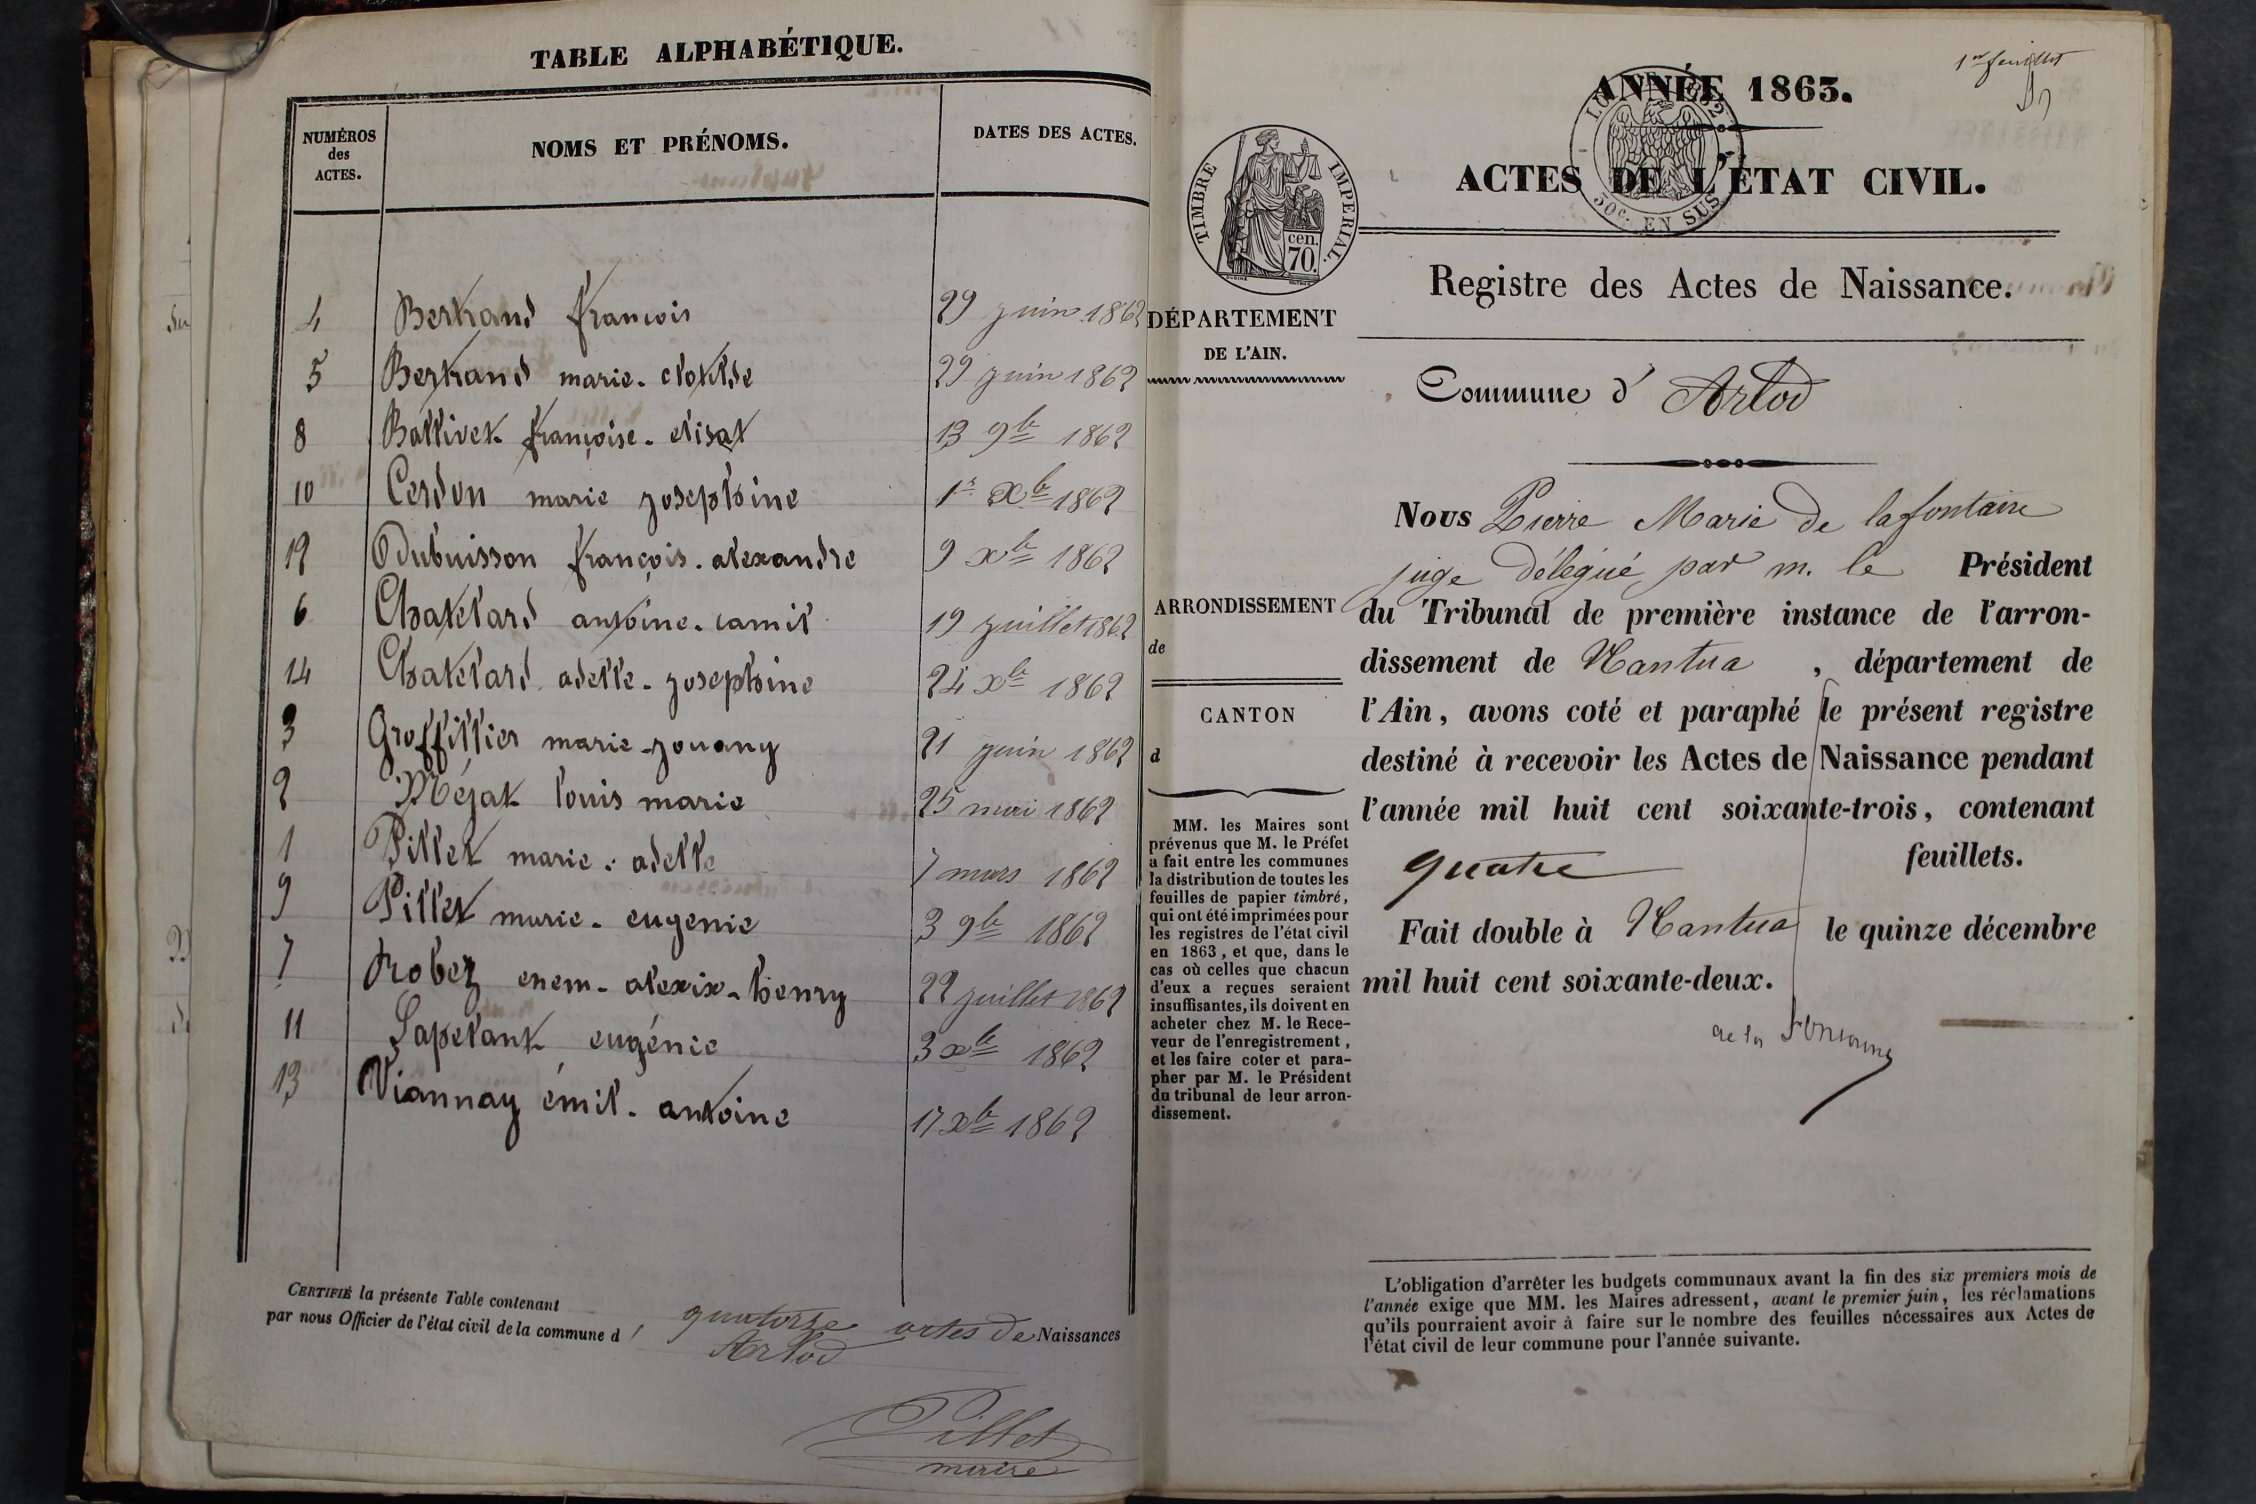 TABLE ALPHABÉTIQUE.
NUMÉROS des ACTES. NOMS ET PRÉNOMS. DATES DES ACTES.
4 Bertrand françois 29 juin 1862
5 Bertrand marie. clotilde 29 juin 1862
8 Ballivet. françoise. elisat 13 9bre 1862
10 Cerdon marie josephine 1er Xbre 1862
12 Dubuisson françois. alexandre 9 Xbre 1862
6 Chatelard antoine. camil 19 juillet 1862
14 Chatelard adelle. josephine 24 Xbre 1862
3 Groffillier marie-jouany 21 juin 1862
2 Méjat louis marie 25 mai 1862
1 Pillet marie. adelle 7 mars 1862
9 Pillet marie. eugenie 3 9bre 1862
7 Robez enem. alexix. henry 22 juillet 1862
11 Sapelant eugénie 3 Xbre 1862
13 Viannay émil. antoine 17 Xbre 1862
CERTIFIÉ la présente Table contenant quatorze actes de Naissances
par nous Officier de l'état civil de la commune d' Arlod
Pillet
maire
1er feuillet
ANNÉE 1863.
ACTES DE L'ÉTAT CIVIL.
50c. EN SUS
TIMBRE IMPERIAL.
cen.
70.
Registre des Actes de Naissance.
DÉPARTEMENT
DE L'AIN.
ARRONDISSEMENT
de
CANTON
d
MM. les Maires sont
prévenus que M. le Préfet
a fait entre les communes
la distribution de toutes les
feuilles de papier timbré,
qui ont été imprimées pour
les registres de l'état civil
en 1863, et que, dans le
cas où celles que chacun
d'eux a reçues seraient
insuffisantes, ils doivent en
acheter chez M. le Rece-
veur de l'enregistrement,
et les faire coter et para-
pher par M. le Président
du tribunal de leur arron-
dissement.
Commune d' Arlod
Nous Pierre Marie de lafontaine
juge délégué par m. le Président
du Tribunal de première instance de l'arron-
dissement de Nantua, département de
l'Ain, avons coté et paraphé le présent registre
destiné à recevoir les Actes de Naissance pendant
l'année mil huit cent soixante-trois, contenant
quatre feuillets.
Fait double à Nantua le quinze décembre
mil huit cent soixante-deux.
L'obligation d'arrêter les budgets communaux avant la fin des six premiers mois de
l'année exige que MM. les Maires adressent, avant le premier juin, les réclamations
qu'ils pourraient avoir à faire sur le nombre des feuilles nécessaires aux Actes de
l'état civil de leur commune pour l'année suivante.